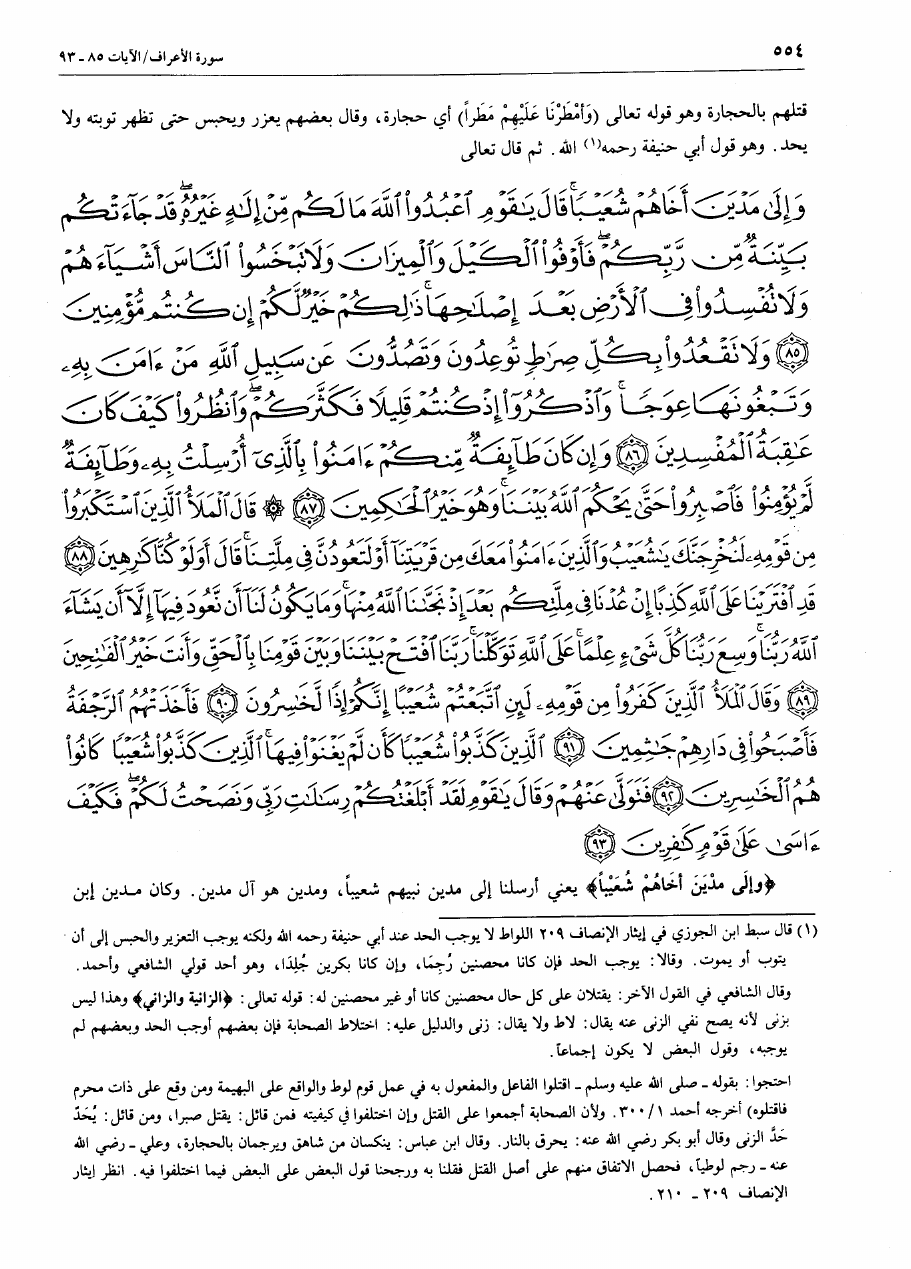 ٥٥٤
سورة الأعراف/ الآيات ٨٥ ـ ٩٣
قتلهم بالحجارة وهو قوله تعالى (وَأمْطَرْنَا عَلَيْهِمْ مَطَراً) أي حجارة، وقال بعضهم يعزر ويحبس حتى تظهر توبته ولا
يحد. وهو قول أبي حنيفة رحمه(١) الله. ثم قال تعالى
وَإِلَىٰ مَدْيَنَ أَخَاهُمْ شُعَيْبًاۗ قَالَ يَٰقَوْمِ ٱعْبُدُوا۟ ٱللَّهَ مَا لَكُم مِّنْ إِلَٰهٍ غَيْرُهُۥۖ قَدْ جَآءَتْكُم
بَيِّنَةٌ مِّن رَّبِّكُمْۖ فَأَوْفُوا۟ ٱلْكَيْلَ وَٱلْمِيزَانَ وَلَا تَبْخَسُوا۟ ٱلنَّاسَ أَشْيَآءَهُمْ
وَلَا تُفْسِدُوا۟ فِى ٱلْأَرْضِ بَعْدَ إِصْلَٰحِهَاۚ ذَٰلِكُمْ خَيْرٌ لَّكُمْ إِن كُنتُم مُّؤْمِنِينَ
﴿٨٥﴾ وَلَا تَقْعُدُوا۟ بِكُلِّ صِرَٰطٍ تُوعِدُونَ وَتَصُدُّونَ عَن سَبِيلِ ٱللَّهِ مَنْ ءَامَنَ بِهِۦ
وَتَبْغُونَهَا عِوَجًاۚ وَٱذْكُرُوٓا۟ إِذْ كُنتُمْ قَلِيلًا فَكَثَّرَكُمْۖ وَٱنظُرُوا۟ كَيْفَ كَانَ
عَٰقِبَةُ ٱلْمُفْسِدِينَ ﴿٨٦﴾ وَإِن كَانَ طَآئِفَةٌ مِّنكُمْ ءَامَنُوا۟ بِٱلَّذِىٓ أُرْسِلْتُ بِهِۦ وَطَآئِفَةٌ
لَّمْ يُؤْمِنُوا۟ فَٱصْبِرُوا۟ حَتَّىٰ يَحْكُمَ ٱللَّهُ بَيْنَنَاۚ وَهُوَ خَيْرُ ٱلْحَٰكِمِينَ ﴿٨٧﴾ ۞ قَالَ ٱلْمَلَأُ ٱلَّذِينَ ٱسْتَكْبَرُوا۟
مِن قَوْمِهِۦ لَنُخْرِجَنَّكَ يَٰشُعَيْبُ وَٱلَّذِينَ ءَامَنُوا۟ مَعَكَ مِن قَرْيَتِنَآ أَوْ لَتَعُودُنَّ فِى مِلَّتِنَاۚ قَالَ أَوَلَوْ كُنَّا كَٰرِهِينَ ﴿٨٨﴾
قَدِ ٱفْتَرَيْنَا عَلَى ٱللَّهِ كَذِبًا إِنْ عُدْنَا فِى مِلَّتِكُم بَعْدَ إِذْ نَجَّىٰنَا ٱللَّهُ مِنْهَاۚ وَمَا يَكُونُ لَنَآ أَن نَّعُودَ فِيهَآ إِلَّآ أَن يَشَآءَ
ٱللَّهُ رَبُّنَاۚ وَسِعَ رَبُّنَا كُلَّ شَىْءٍ عِلْمًاۚ عَلَى ٱللَّهِ تَوَكَّلْنَاۚ رَبَّنَا ٱفْتَحْ بَيْنَنَا وَبَيْنَ قَوْمِنَا بِٱلْحَقِّ وَأَنتَ خَيْرُ ٱلْفَٰتِحِينَ
﴿٨٩﴾ وَقَالَ ٱلْمَلَأُ ٱلَّذِينَ كَفَرُوا۟ مِن قَوْمِهِۦ لَئِنِ ٱتَّبَعْتُمْ شُعَيْبًا إِنَّكُمْ إِذًا لَّخَٰسِرُونَ ﴿٩٠﴾ فَأَخَذَتْهُمُ ٱلرَّجْفَةُ
فَأَصْبَحُوا۟ فِى دَارِهِمْ جَٰثِمِينَ ﴿٩١﴾ ٱلَّذِينَ كَذَّبُوا۟ شُعَيْبًا كَأَن لَّمْ يَغْنَوْا۟ فِيهَاۚ ٱلَّذِينَ كَذَّبُوا۟ شُعَيْبًا كَانُوا۟
هُمُ ٱلْخَٰسِرِينَ ﴿٩٢﴾ فَتَوَلَّىٰ عَنْهُمْ وَقَالَ يَٰقَوْمِ لَقَدْ أَبْلَغْتُكُمْ رِسَٰلَٰتِ رَبِّى وَنَصَحْتُ لَكُمْۖ فَكَيْفَ
ءَاسَىٰ عَلَىٰ قَوْمٍ كَٰفِرِينَ ﴿٩٣﴾
﴿وإلَى مدْيَنَ أخَاهُمْ شُعَيْباً﴾ يعني أرسلنا إلى مدين نبيهم شعيباً، ومدين هو آل مدين. وكان مدين إبن
(١) قال سبط ابن الجوزي في إيثار الإنصاف ٢٠٩ اللواط لا يوجب الحد عند أبي حنيفة رحمه الله ولكنه يوجب التعزير والحبس إلى أن
يتوب أو يموت. وقالا: يوجب الحد فإن كانا محصنين رُجِمَا، وإن كانا بكرين جُلِدَا، وهو أحد قولي الشافعي وأحمد.
وقال الشافعي في القول الآخر: يقتلان على كل حال محصنين كانا أو غير محصنين له: قوله تعالى: ﴿الزانية والزاني﴾ وهذا ليس
بزنى لأنه يصح نفي الزنى عنه يقال: لاط ولا يقال: زنى والدليل عليه: اختلاط الصحابة فإن بعضهم أوجب الحد وبعضهم لم
يوجبه، وقول البعض لا يكون إجماعاً.
احتجوا: بقوله ـ صلى الله عليه وسلم ـ اقتلوا الفاعل والمفعول به في عمل قوم لوط والواقع على البهيمة ومن وقع على ذات محرم
فاقتلوه) أخرجه أحمد ٣٠٠/١. ولأن الصحابة أجمعوا على القتل وإن اختلفوا في كيفيته فمن قائل: يقتل صبرا، ومن قائل: يُحَدُّ
حَدَّ الزنى وقال أبو بكر رضي الله عنه: يحرق بالنار. وقال ابن عباس: ينكسان من شاهق ويرجمان بالحجارة، وعلي ـ رضي الله
عنه ـ رجم لوطياً، فحصل الاتفاق منهم على أصل القتل فقلنا به ورجحنا قول البعض على البعض فيما اختلفوا فيه. انظر إيثار
الإنصاف ٢٠٩ ـ ٢١٠.